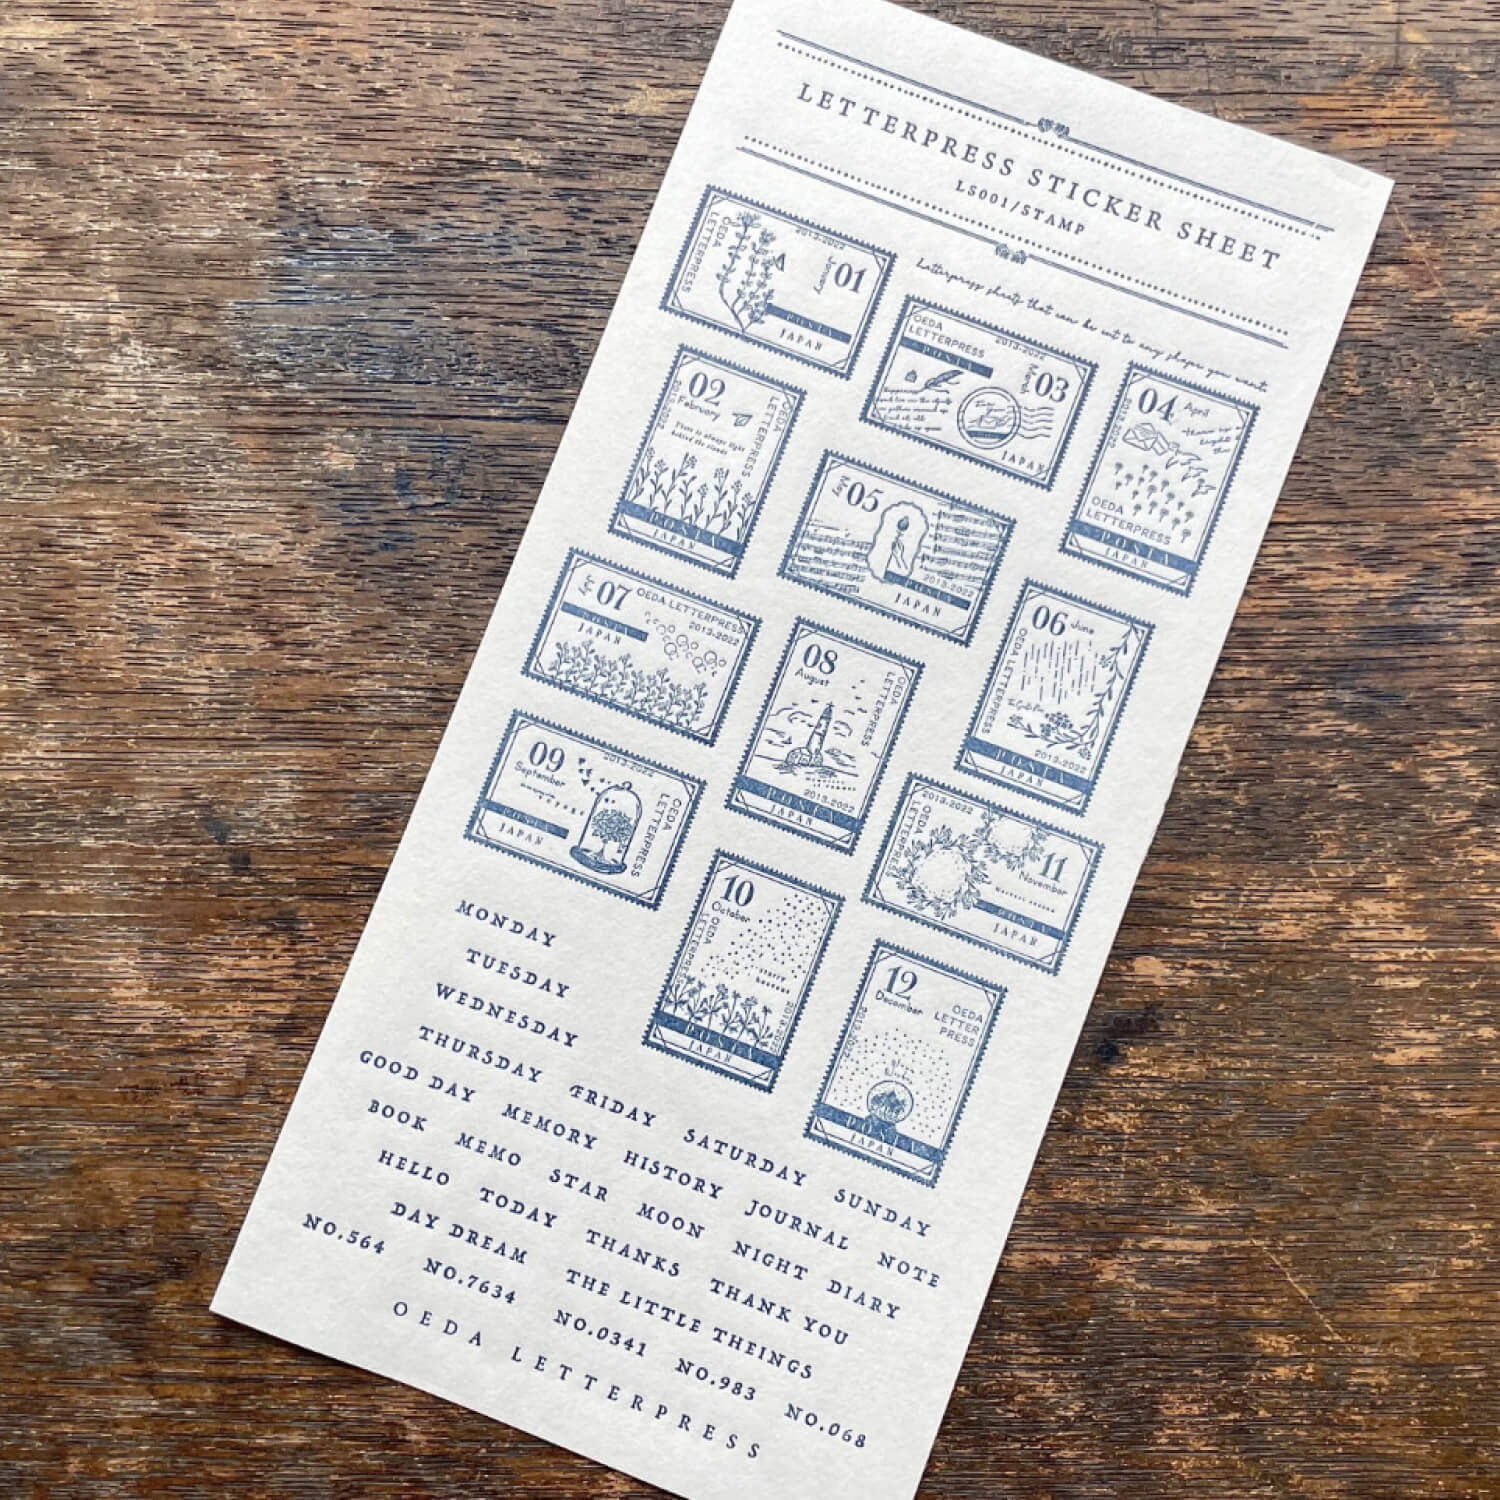 LETTERPRESS STICKER SHEET
LS001/STAMP
Letterpress sheets that can be cut to any shapes you want
OEDA
LETTERPRESS
2013-2022
January
01
POSTA
JAPAN
02
February
2013-2022
OEDA
LETTERPRESS
There is always light
behind the clouds
POSTA
JAPAN
OEDA
LETTERPRESS
2013-2022
POSTA
March
03
JAPAN
04
April
2013-2022
OEDA
LETTERPRESS
POSTA
JAPAN
May
05
2013-2022
POSTA
JAPAN
06
June
OEDA LETTERPRESS
2013-2022
POSTA
JAPAN
July
07
OEDA LETTERPRESS
2013-2022
POSTA
JAPAN
08
August
OEDA
LETTERPRESS
2013-2022
POSTA
JAPAN
09
September
2013-2022
OEDA
LETTERPRESS
POSTA
JAPAN
10
October
OEDA
LETTERPRESS
2013-2022
POSTA
JAPAN
2013-2022
OEDA
LETTERPRESS
11
November
POSTA
JAPAN
12
December
OEDA
LETTER
PRESS
2013-2022
POSTA
JAPAN
MONDAY
TUESDAY
WEDNESDAY
THURSDAY FRIDAY SATURDAY SUNDAY
GOOD DAY MEMORY HISTORY JOURNAL NOTE
BOOK MEMO STAR MOON NIGHT DIARY
HELLO TODAY THANKS THANK YOU
DAY DREAM THE LITTLE THEINGS
NO.564 NO.7634 NO.0341 NO.983 NO.068
OEDA LETTERPRESS